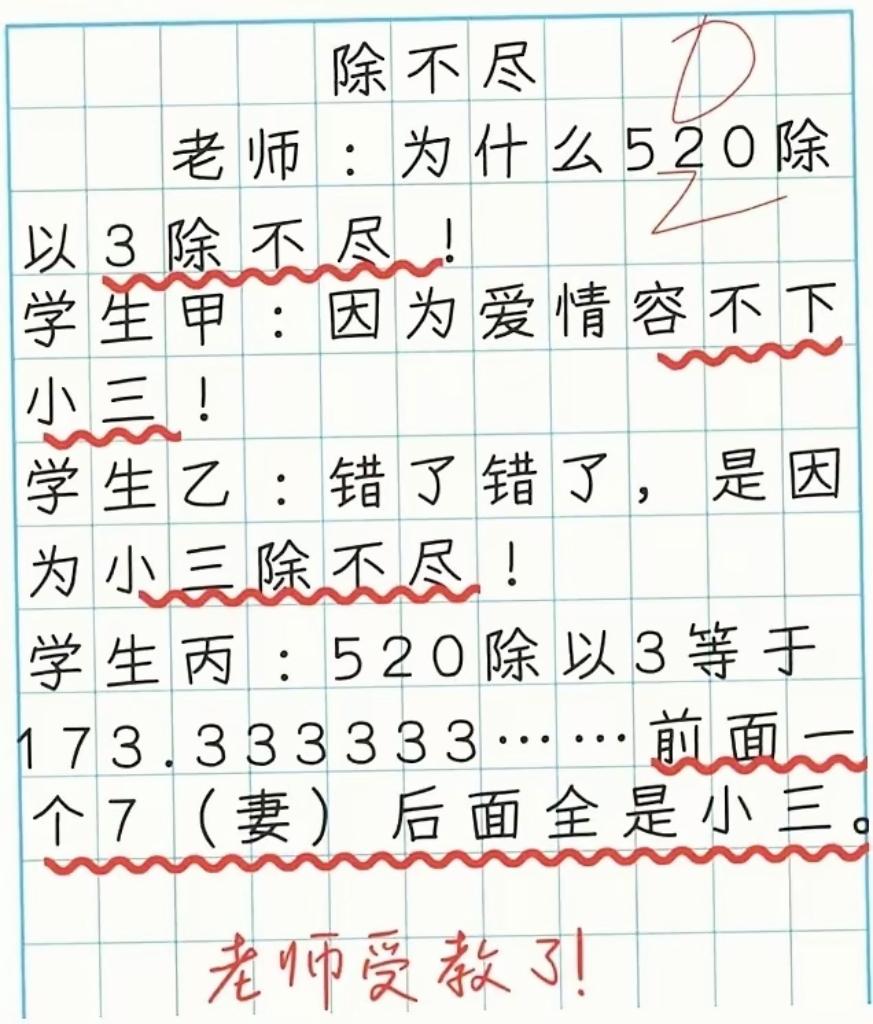 除不尽
老师：为什么520除
以3除不尽！
学生甲：因为爱情容不下
小三！
学生乙：错了错了，是因
为小三除不尽！
学生丙：520除以3等于
173.333333……前面一
个7（妻）后面全是小三。
老师受教了!